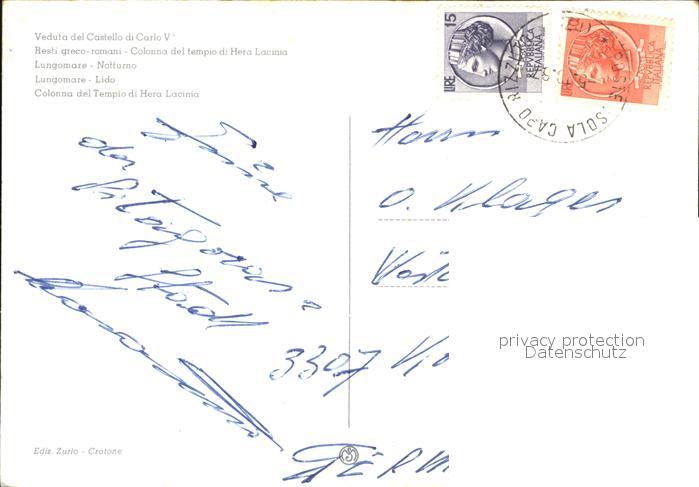 Veduta del Castello di Carlo V°
Resti greco-romani - Colonna del tempio di Hera Lacinia
Lungomare - Notturno
Lungomare - Lido
Colonna del Tempio di Hera Lacinia
LIRE 15
REPVBBLICA
ITALIANA
LIRE
REPVBBLICA
ITALIANA
ISOLA CAPO RIZZ
Grüße
a
der
Pitagoras
Stadt
Herrn
O. Klages
3307
GERM
privacy protection
Datenschutz
Ediz. Zurlo - Crotone